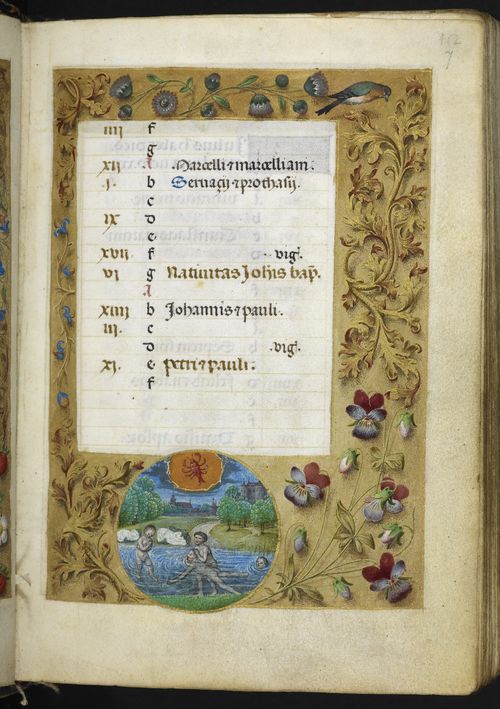 152
7
iiii f
g
xii A Marcelli ⁊ marcelliani.
i. b Seruacij ⁊ prothasij.
c
ix d
e
xvii f vigl.
vi g Natiuitas Johis bap.
A
xiiii b Johannis ⁊ pauli.
iii. c
d vigl.
xi. e Petri ⁊ pauli.
f